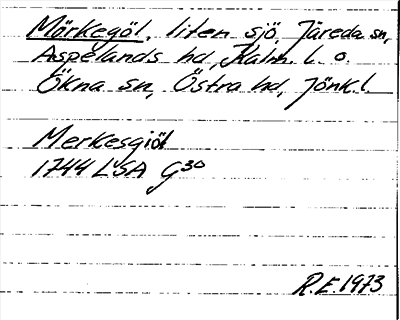 Mörkegöl, liten sjö, Järeda sn,
Aspelands hd, Kalm. l. o.
Ökna sn, Östra hd, Jönk.l.
Merkesgiöl
1744 LSA G30
R.E. 1973